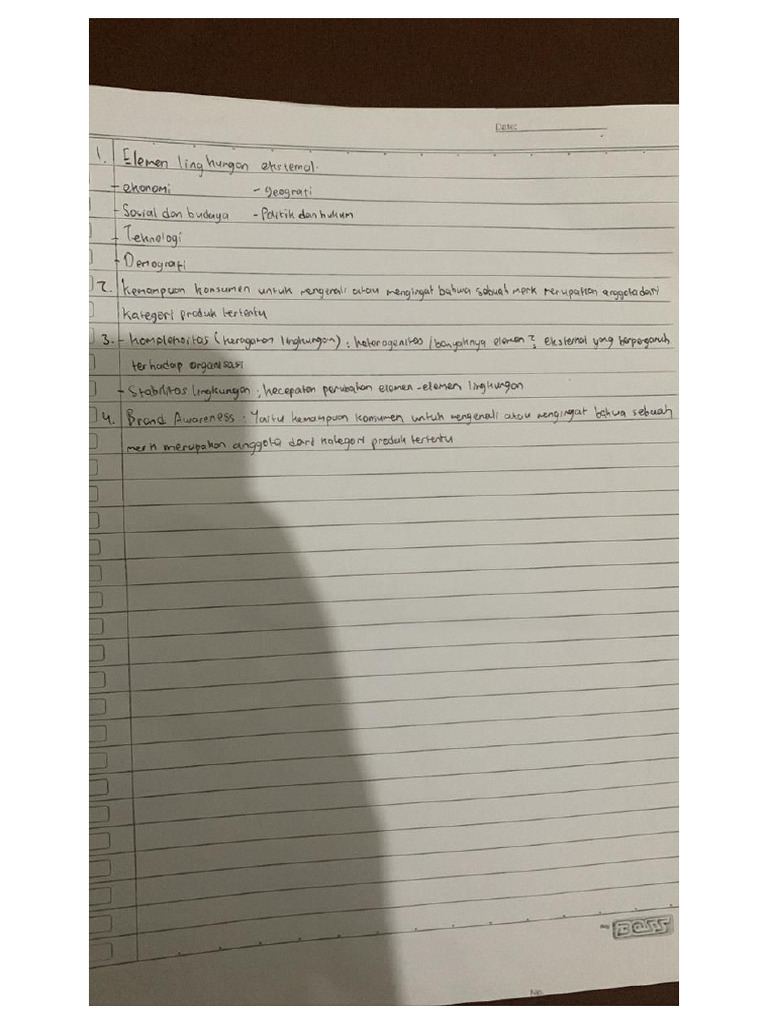 Date:
1. Elemen lingkungan eksternal.
- ekonomi - geografi
- Sosial dan budaya - Politik dan hukum
- Teknologi
- Demografi
2. Kemampuan konsumen untuk mengenali atau mengingat bahwa sebuah merk merupakan anggota dari
kategori produk tertentu
3. - Kompleksitas (keragaman lingkungan) : heterogenitas / banyaknya elemen2 eksternal yang berpengaruh
terhadap organisasi
- Stabilitas lingkungan : kecepatan perubahan elemen-elemen lingkungan
4. Brand Awareness : Yaitu kemampuan konsumen untuk mengenali atau mengingat bahwa sebuah
merk merupakan anggota dari kategori produk tertentu
BOSS
No.